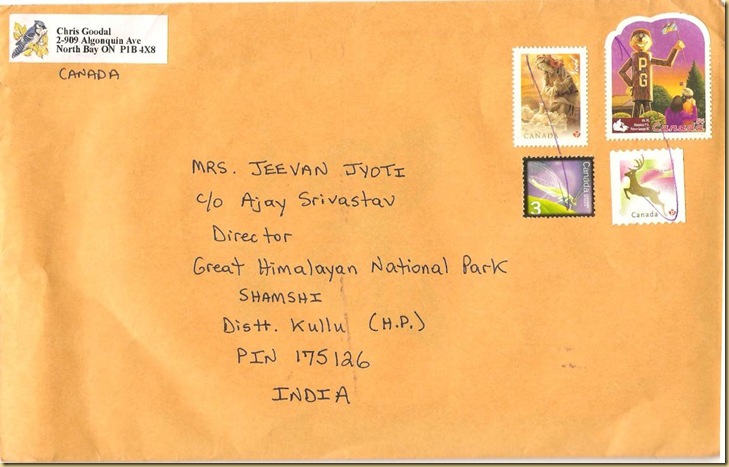 Chris Goodal
2-909 Algonquin Ave
North Bay ON P1B 4X8
CANADA
PG
CANADA
Canada
Canada
3
Canada
MRS. JEEVAN JYOTI
c/o Ajay Srivastav
Director
Great Himalayan National Park
SHAMSHI
Distt. Kullu (H.P.)
PIN 175126
INDIA